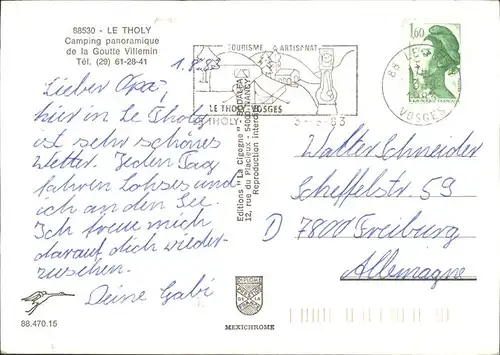 88530 - LE THOLY
Camping panoramique
de la Goutte Villemin
Tél. (29) 61-28-41
1.8.83
Lieber Opa,
hier in Le Tholy
ist sehr schönes
Wetter. Jeden Tag
fahren und
ich an den See.
Ich freue mich
darauf dich wieder-
zusehen.
Deine Gabi
88.470.15
TOURISME & ARTISANAT
LE THOLY VOSGES
Editions "La Cigogne"
12, rue du Placieux - 54000 NANCY
Reproduction interdite
MEXICHROME
1,60
88 LE THOLY
VOSGES
Walter Schneider
Scheffelstr 59
D 7800 Freiburg
Allemagne